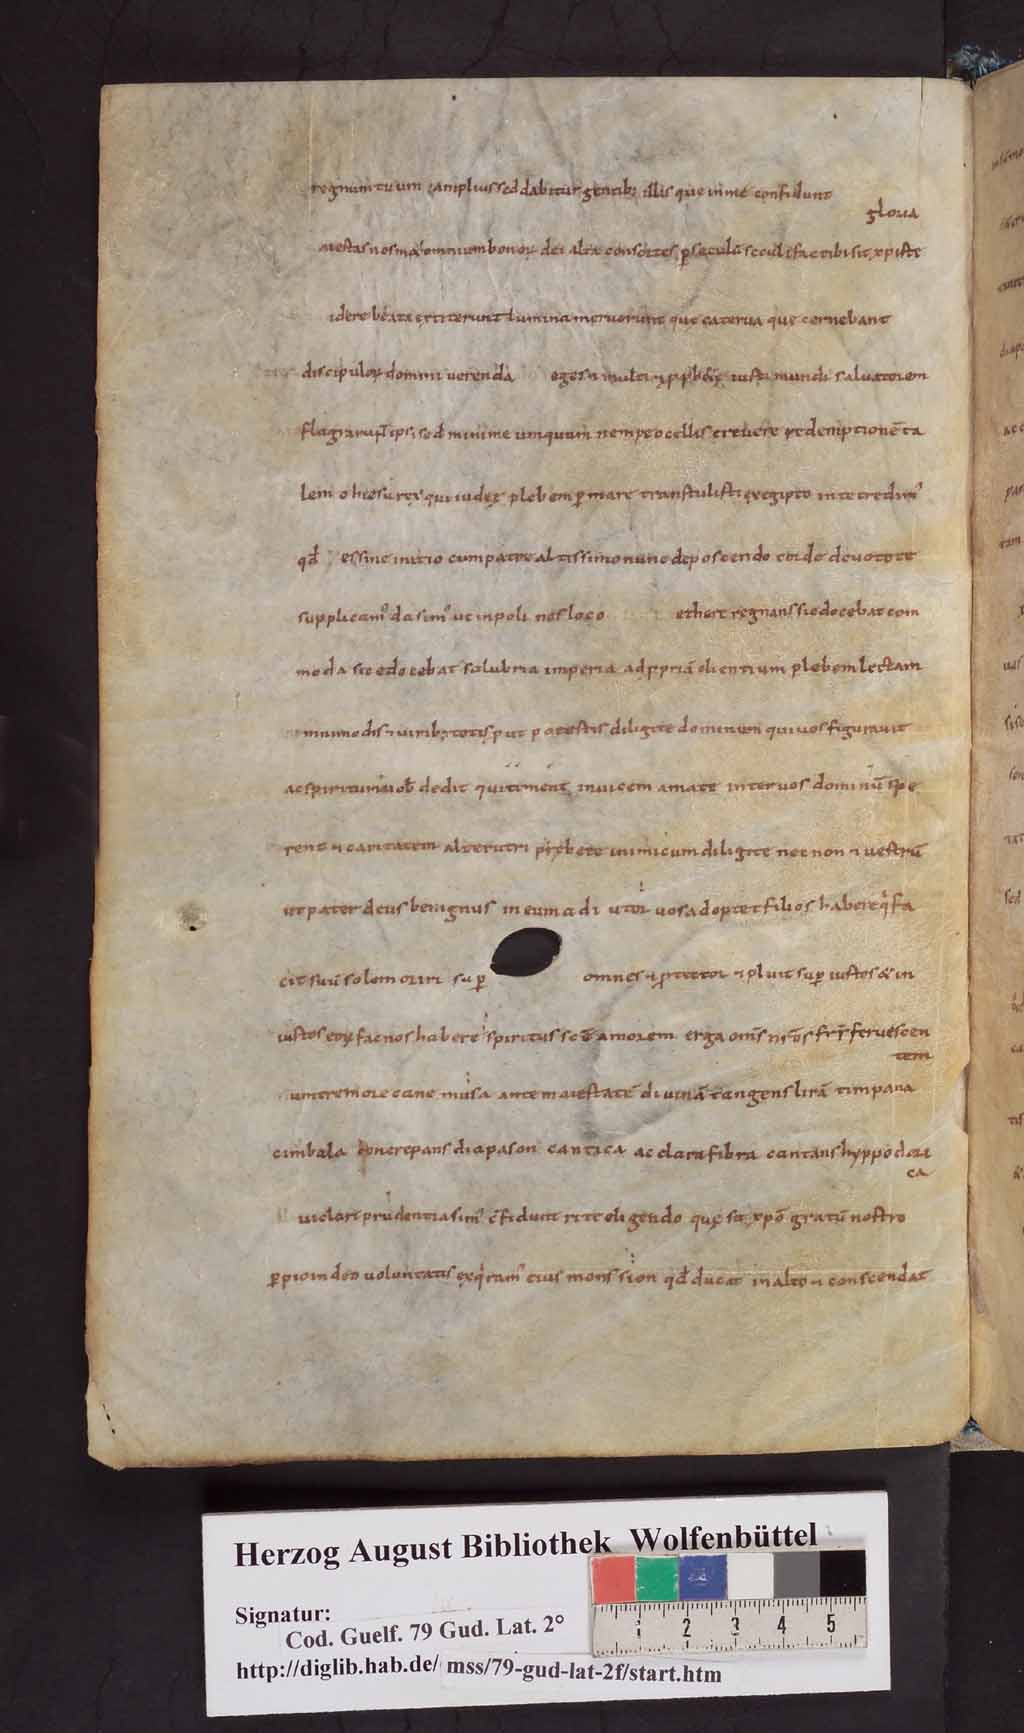 regnum tuum amplius sed dabitur gentibꝫ illis que in me confidunt
gloria
aiestas nosmet omnium bonoꝝ dei alta consortes ꝑ seculū seculi facti tibi sit xpiste
idere beata extiterunt lumina meruerunt que caterua que cernebant
discipuloꝝ domini uerenda eges & multi ꝓphetę iusti mundi saluatorem
flagrarunt ipsi sed minime umquam nempe ocellis creuere redemptionē ta
lem o hiesu rex qui iudex plebem ꝑ mare transtulisti ex egipto in te credim᾽
qđ es sine initio cum patre altissimo nunc deposcendo corde deuoto te
supplicam᾽ da sim᾽ ut in poli nos loco ethere regnans sic docebat com
moda sic edocebat salubria imperia ad ꝓpriā olientium plebem lectam
mnimodis & uiribꝫ totis put potestis diligite dominum qui uos figurauit
ac spiritum uob dedit inuicem amate inter uos dominū spe
rent & caritatem alterutri prebete inimicum diligite nec non & uestrū
ut pater deus benignus in eum cidi uos adoptet filios habere q fa
cit suū solem oriri suꝑ omnes & pluit suꝑ iustos & in
iustos fac nos habere spiritus scē amorem erga om̄s nr̄os fr̄r̄ feruescen
tem
um tremore cane musa ante maiestatē diuinā tangens lirā timpana
cimbala concrepans diapason cantica ac clara fibra cantans hyppodori
ca
uiclari prudentia sim᾽ cfidunt rite eligendo quę sit xpō gratū nostro
ꝑ pio in deo uoluntatis exqram᾽ eius mons sion qđ ducat in alto & conscendat
Herzog August Bibliothek Wolfenbüttel
Signatur:
Cod. Guelf. 79 Gud. Lat. 2°
http://diglib.hab.de/ mss/79-gud-lat-2f/start.htm
1 2 3 4 5